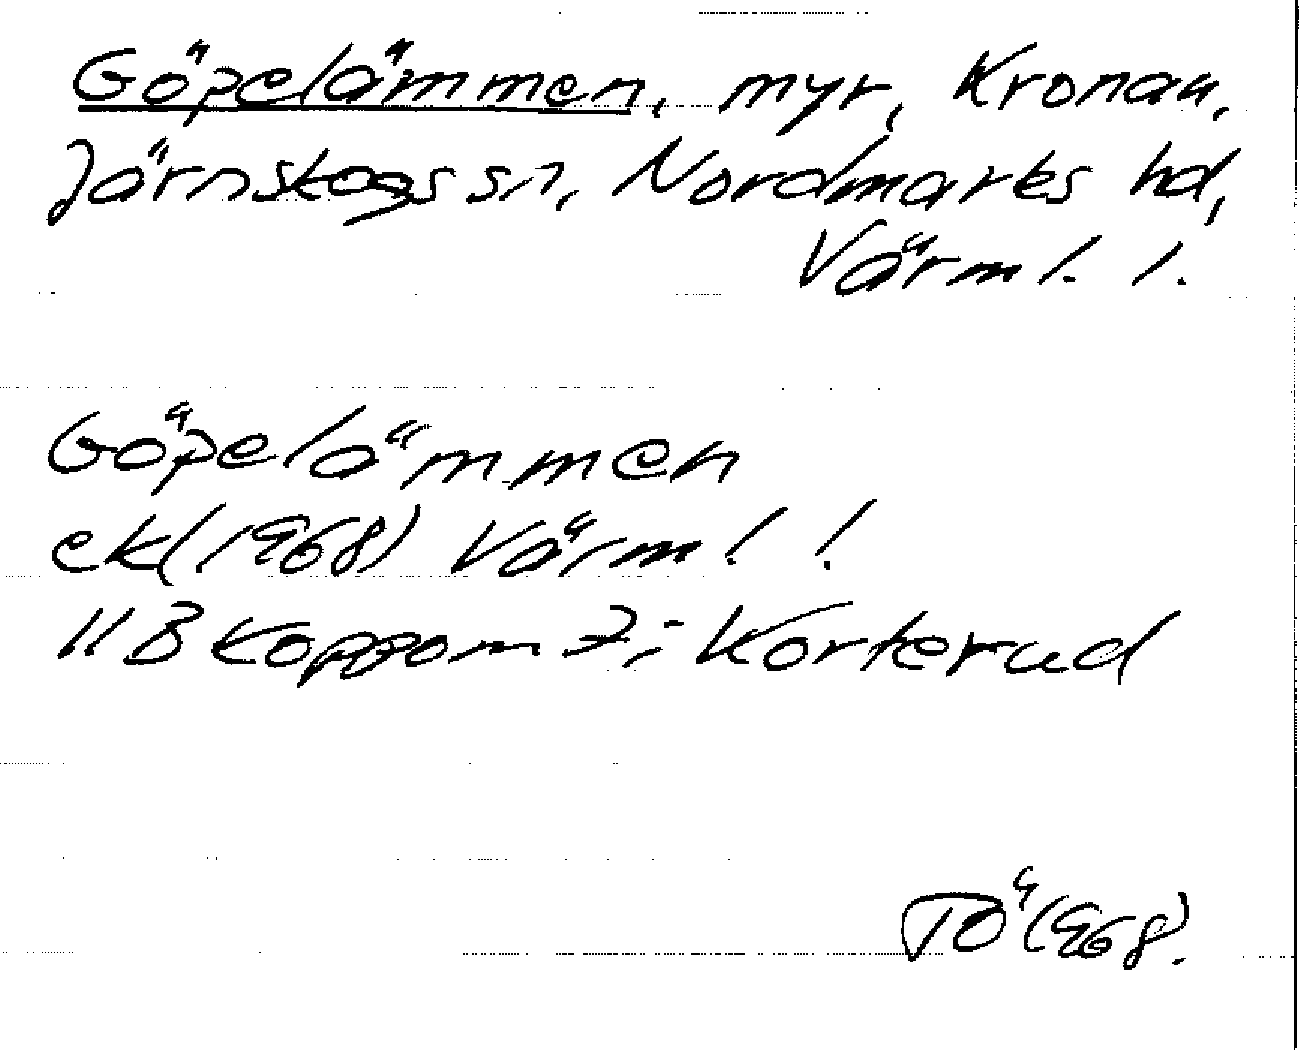 Göpelämmen, myr, Kronan,
Järnskogs sn, Nordmarks hd,
Värml. l.
Göpelämmen
ek (1968) Värml. l.
11B Koppom 7i Korterud
TÖ 1968.